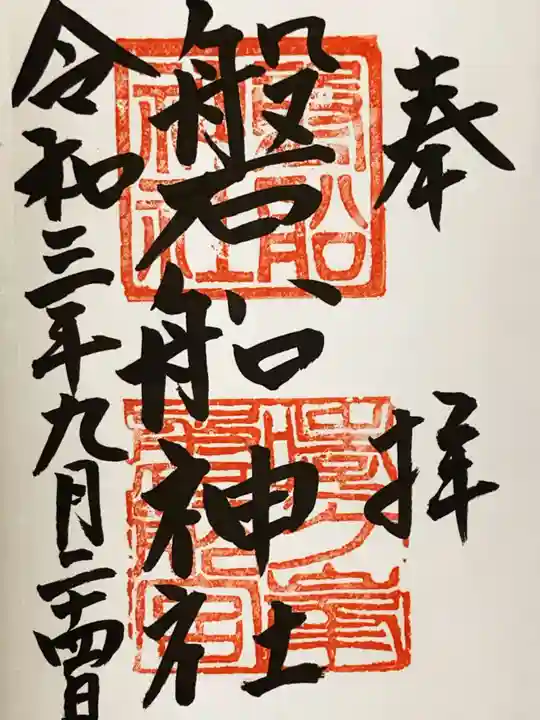 奉拝
磐船神社
令和三年九月二十四日
磐船神社